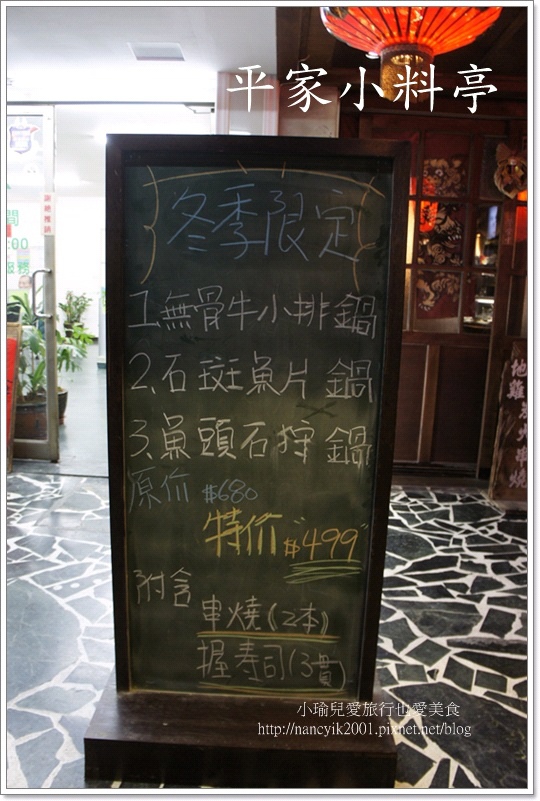 平家小料亭
冬季限定
1.無骨牛小排鍋
2.石斑魚片鍋
3.魚頭石狩鍋
原价 $680
特价 $"499"
附含
串燒(2本)
握壽司(3貫)
地雞炭火串燒
小瑜兒愛旅行也愛美食
http://nancyik2001.pixnet.net/blog